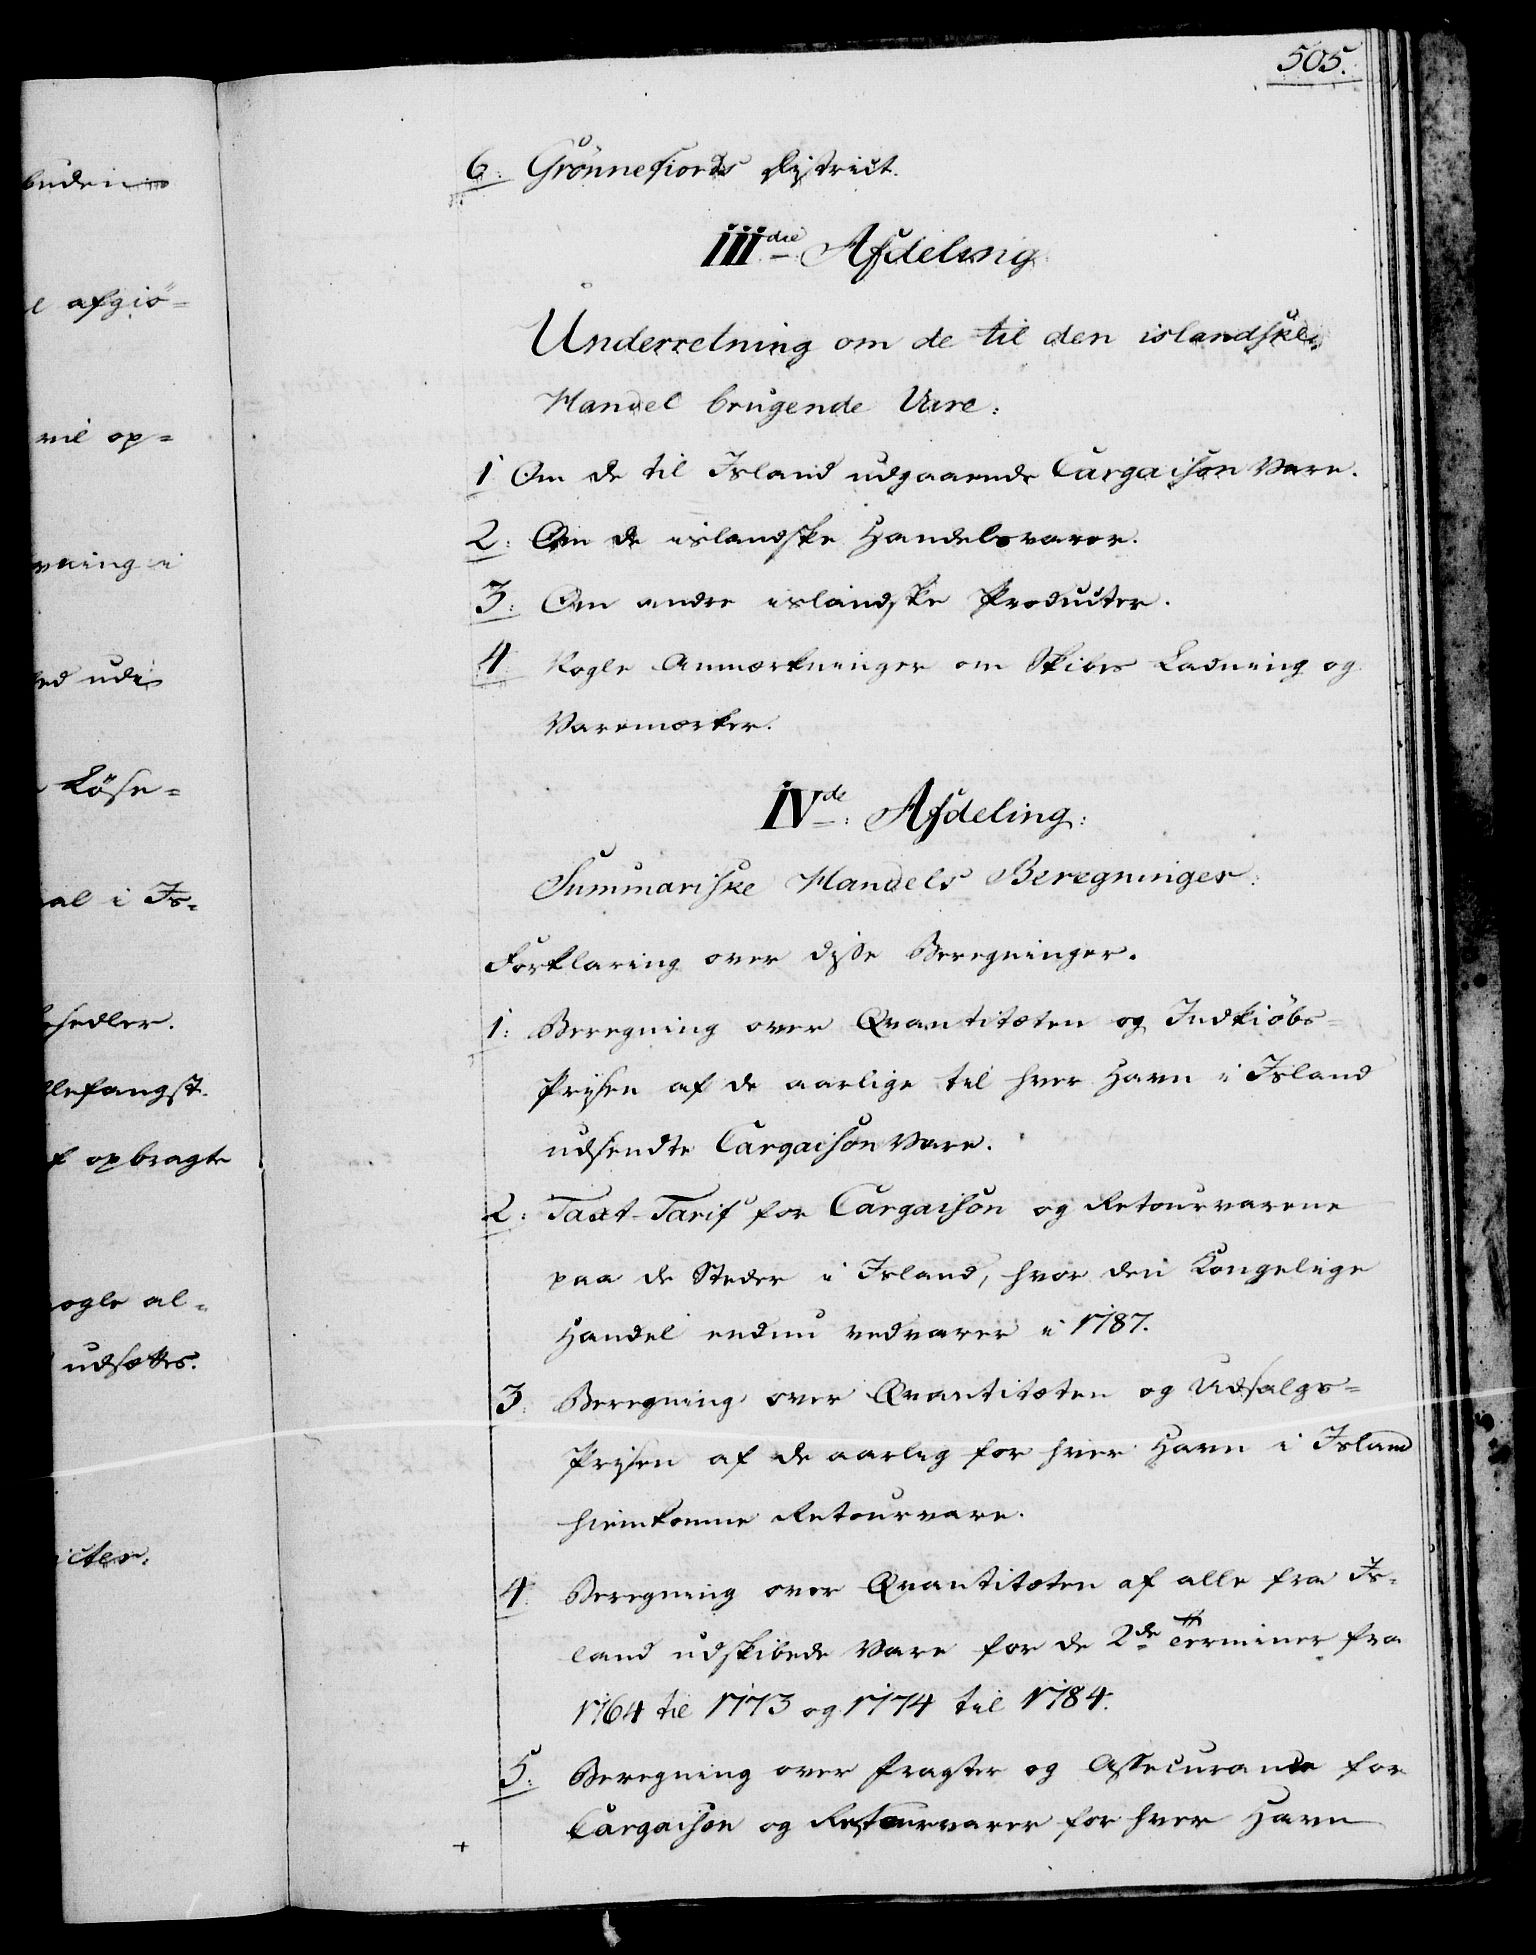 505.
6. Grönnefiords District.
III.die Afdeling
Underretning om de til den islandske
Handel brugende Vare:
1 Om de til Island udgaaende Cargaison Vare.
2. Om de islandske Handelsvarer.
3. Om andre islandske Producter.
4 Nogle Anmærkninger om Skibes Ladning og
Varemærker.
IV.de Afdeling:
Summariske Handels Beregninger:
Forklaring over disse Beregninger.
1: Beregning over Qvantitæten og Indkiöbs-
Prisen af de aarlige til hver Havn i Island
udsendte Cargaison Vare.
2: Taxt-Tarif for Cargaison og Retourvarene
paa de Steder i Island, hvor den Kongelige
Handel endnu vedvarer i 1787.
3. Beregning over Qvantitæten og Udsalgs-
Prisen af de aarlig for hver Havn i Island
hiemkomne Retourvare.
4. Beregning over Qvantitæten af alle fra Is-
land udskibede Vare for de 2de Terminer fra
1764 til 1773 og 1774 til 1784.
5. Beregning over Fragter og Assecurance for
Cargaison og Retourvarer for hver Havn
buden
afgiö-
vil op-
udi
Löse-
al i Is-
sedler.
lefangst.
f opbragte
ogle al-
udsættes.
icter.